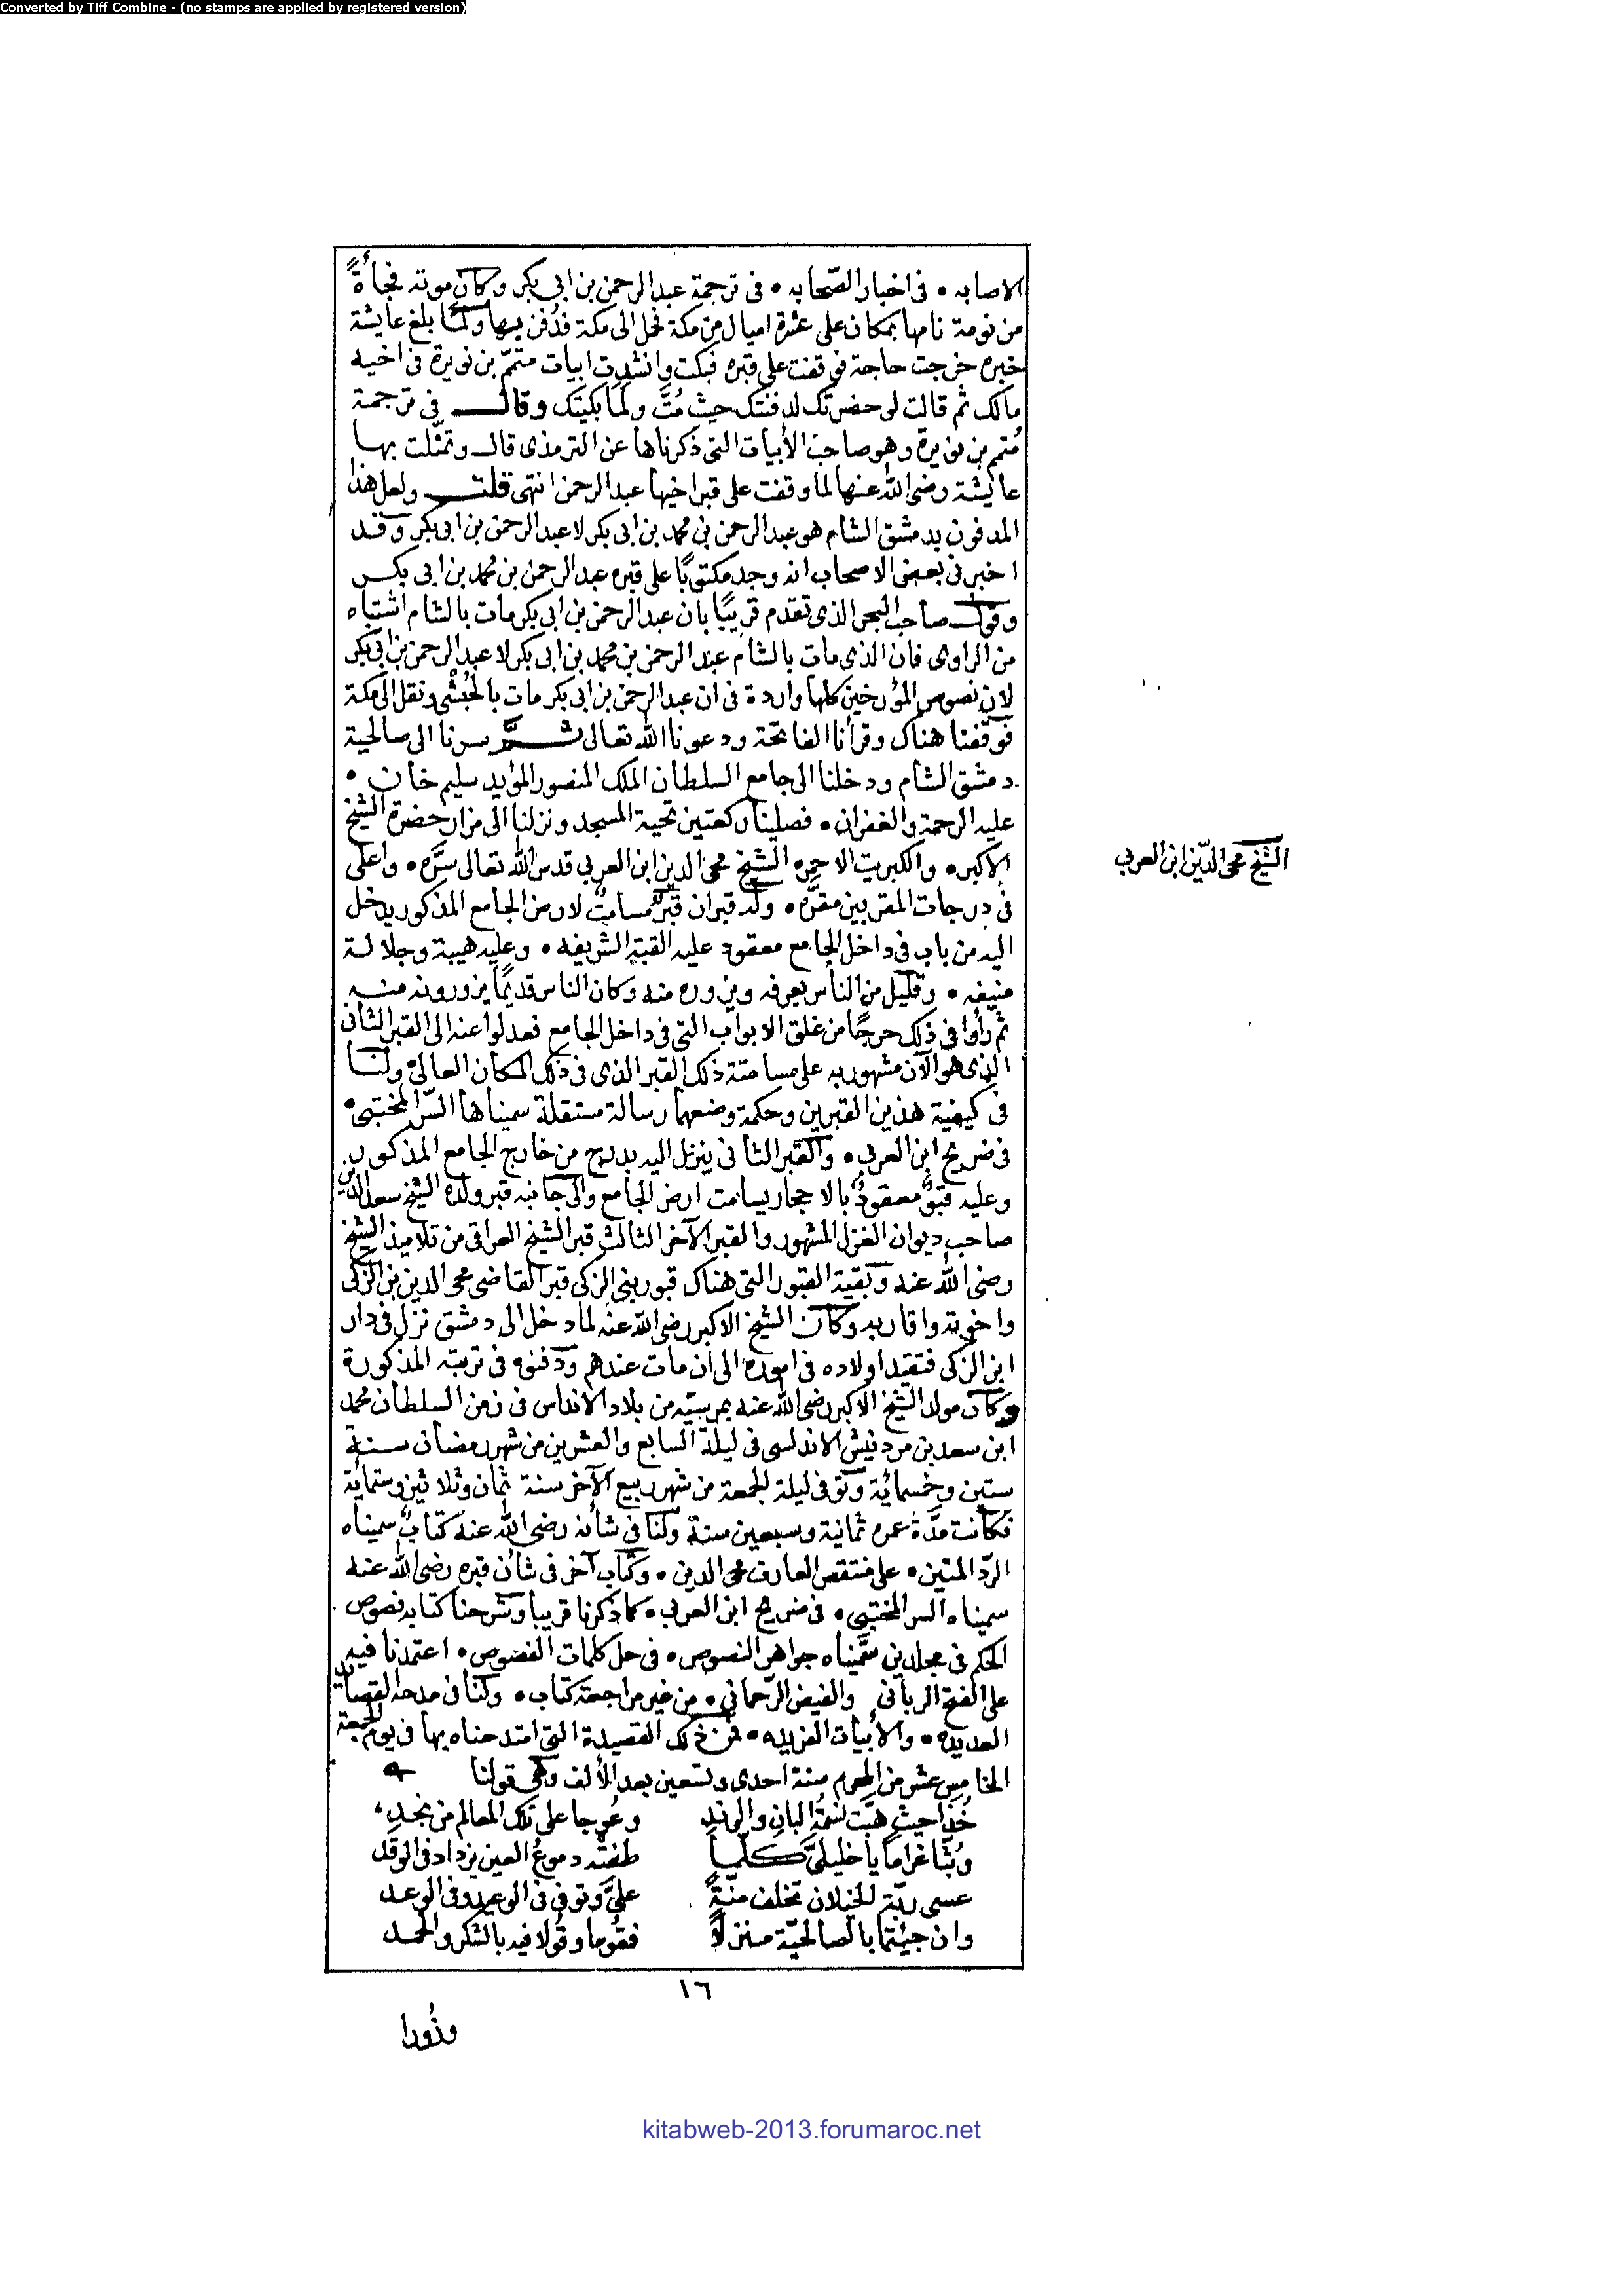 Converted by Tiff Combine - (no stamps are applied by registered version)
الاصابه • فى اخبار الصّحابه • فى ترجمة عبد الرحمن بن ابى بكر وكان موته فجأةً
من نومة نامها بمكان على عشرة اميال من مكة فحمل الى مكة فدُفن بها ولمّا بلغ عايشة
خبره خرجت حاجة فوقفت على قبره فبكت وانشدت ابيات متمّم بن نويرة فى اخيه
مالك ثم قالت لو حضرتك لدفنتك حيث مُتَّ ولما بكيتك وقال فى ترجمة
مُتمم بن نويرة وهو صاحب الأبيات التى ذكرناها عن الترمذى قال وتمثّلت بها
عايشة رضى الله عنها لما وقفت على قبر اخيها عبد الرحمن انتهى قلت ولعل هذا
المدفون بدمشق الشام هو عبد الرحمن بن محمد بن ابى بكر لا عبد الرحمن بن ابى بكر وقد
اخبرنى بعض الاصحاب انه وجد مكتوبًا على قبره عبد الرحمن بن محمد بن ابى بكر
وقول صاحب البحر الذى تقدم قريبًا بان عبد الرحمن بن ابى بكر مات بالشام اشتباه
من الراوى فان الذى مات بالشام عبد الرحمن بن محمد بن ابى بكر لا عبد الرحمن بن ابى بكر
لان نصوص المؤرخين كلها واردة فى ان عبد الرحمن بن ابى بكر مات بالحُبْشى ونقل الى مكة
فوقفنا هناك وقرأنا الفاتحة ودعونا الله تعالى ثمَّ سرنا الى صالحية
دمشق الشام ودخلنا الى جامع السلطان الملك المنصور المؤيد سليم خان •
عليه الرحمة والغفران • فصلينا ركعتين تحية المسجد ونزلنا الى مزار حضرة الشيخ
الاكبر • والكبريت الاحمر • الشيخ محى الدين ابن العربي قدس الله تعالى سرَّه • واعلى
فى درجات المقربين مقرَّه • وله قبران قبرٌ مسامتٌ لارض الجامع المذكور يدخل
اليه من باب فى داخل الجامع معقود عليه القبة الشريفه • وعليه هيبة وجلالة
منيفه • وقليل من الناس يعرفه ويزوره منه وكان الناس قديمًا يزورونه منه
ثم رأوا فى ذلك حرجًا من غلق الابواب التى فى داخل الجامع فعدلوا عنه الى القبر الثانى
الذى هو الآن مشهور به على مسامتة ذلك القبر الذى فى ذلك المكان العالى ولنا
فى كيفية هذين القبرين وحكمة وضعهما رسالة مستقلة سميناها السرّ المختبى •
فى ضريح ابن العربي • والقبر الثانى ينزل اليه بدرج من خارج الجامع المذكور
وعليه قبوٌ معقودٌ بالاحجار يسامت ارض الجامع والى جانبه قبر ولده الشيخ سعد الدين
صاحب ديوان الغزل المشهور والقبر الآخر الثالث قبر الشيخ العراقى من تلاميذ الشيخ
رضى الله عنه وبقية القبور التى هناك قبور بنى الزكى قبر القاضى محى الدين بن الزكى
واخوته واقاربه وكان الشيخ الاكبر رضى الله عنه لما دخل الى دمشق نزل فى دار
ابن الزكى فتقيد اولاده فى اموره الى ان مات عندهم ودفنوه فى تربته المذكورة
وكان مولد الشيخ الاكبر رضى الله عنه بمرسيّه من بلاد الاندلس فى زمن السلطان محمد
ابن سعد بن مردنيش الاندلسى فى ليلة السابع والعشرين من شهر رمضان سنة
ستين وخمسمائة وتوفى ليلة الجمعة من شهر ربيع الآخر سنة ثمان وثلاثين وستمائة
فكانت مدّة عمره ثمانية وسبعين سنة ولنا فى شأنه رضى الله عنه كتابٌ سميناه
الردّ المتين • على منتقص العارف محى الدين • وكتاب آخر فى شان قبره رضى الله عنه
سميناه السر المختبى • فى ضريح ابن العربي • كما ذكرنا قريبا وشرحنا كتابه فصوص
الحكم فى مجلدين سمَّيناه جواهر النصوص • فى حل كلمات الفصوص • اعتمدنا فيه
على الفتح الربانى والفيض الرّحمانى • من غير مراجعة كتاب • ولنا فى مدحه القصايد
العديده • والأبيات الفريده • فمن ذلك القصيدة التى امتدحناه بها فى يوم الجمعة
الخامس عشر من المحرم سنة احدى وتسعين بعد الألف وهى قولنا
خُذا حيث هبّت نسمةُ البان والرند وعُوجا على تلك المعالم من نجد
وبُثّا غراما يا خليلىَّ كلّما طفتْه دموعُ العين يزداد فى الوقد
عسى ربّة الخلان تخلف منّةً علىَّ وتوفى فى الوعيد وفى الوعد
وان جئتما بالصالحيّة منزلًا فقُوما وقُولا فيه بالشكر والحمد
الشيخ محى الدّين ابن العربي
١٦
وزُورا
kitabweb-2013.forumaroc.net